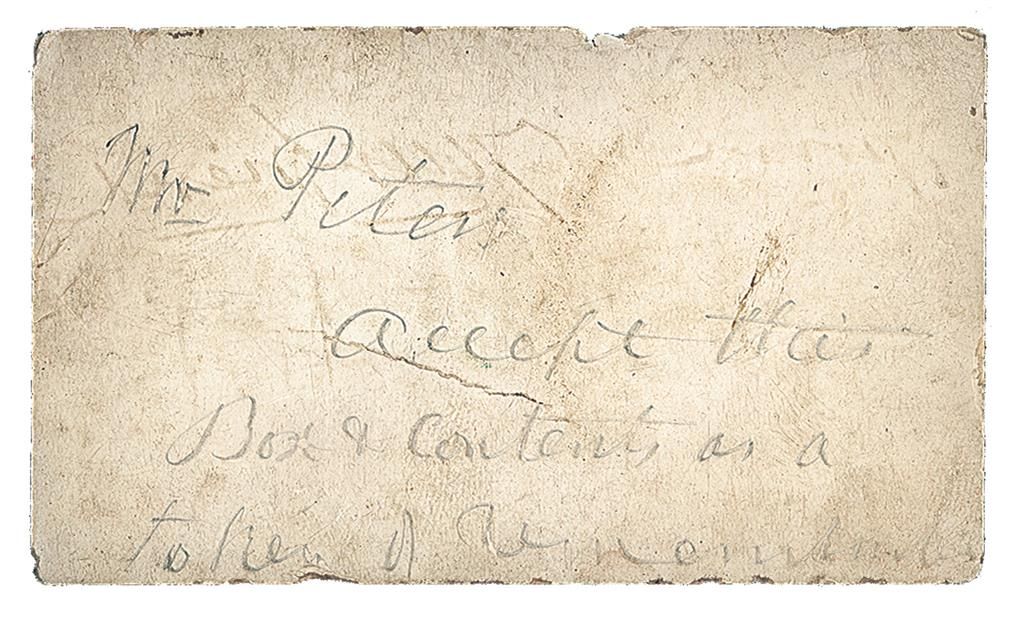 Mr Peters
accept this
Box & Contents as a
token of